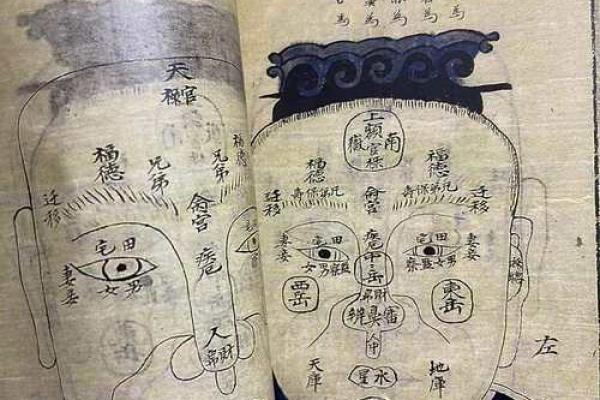 天
官祿
福德
兄弟
兄弟
福德
迁移
命宫
疾厄
田宅
男女
妻妾
人
財帛
上
額
南嶽
官祿
福德
福德
兄弟保壽
兄弟保壽
迁移
迁移
命宫
疾
中岳
妻妾
妻妾
田宅
田宅
男女
男女
西岳
東岳
財帛
審鼻辨
人中
天庫
地庫
水星
左